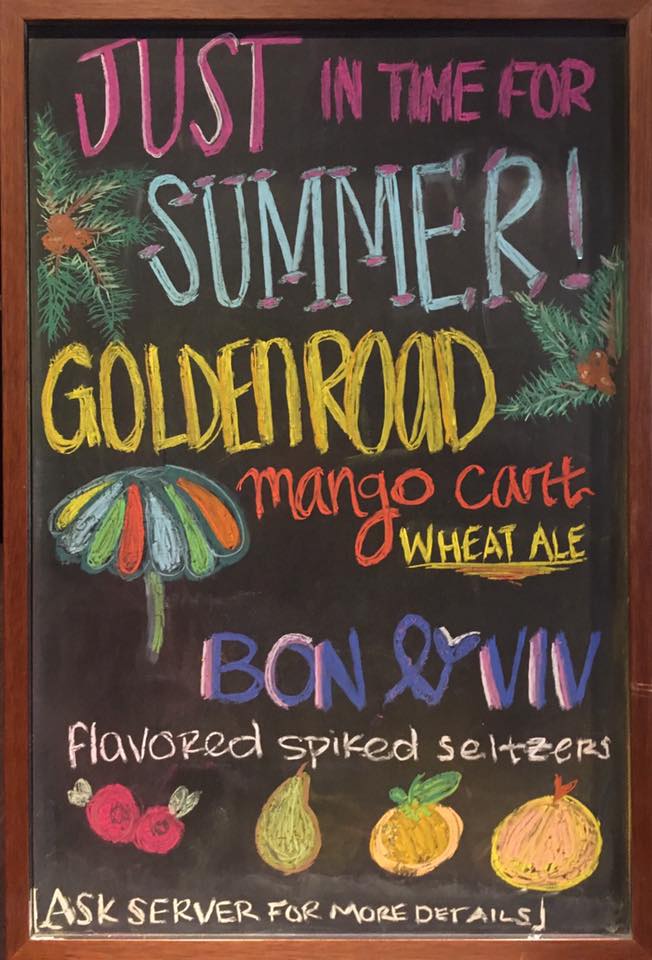 JUST IN TIME FOR
SUMMER!
GOLDEN ROAD
mango cart
WHEAT ALE
BON & VIV
flavored spiked seltzers
[ASK SERVER FOR MORE DETAILS]